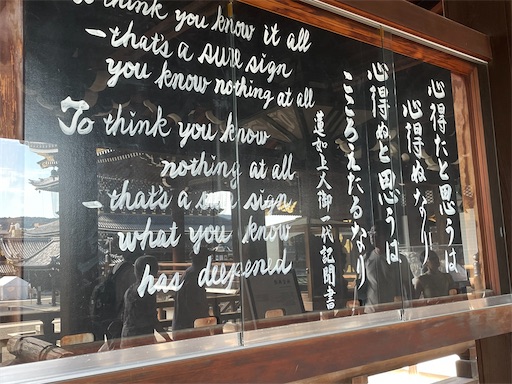 To think you know it all
–that's a sure sign
you know nothing at all
To think you know
nothing at all
–that's a sure sign
what you know
has deepened
心得たと思うは
心得ぬなり
心得ぬと思うは
こころえたるなり
蓮如上人御一代記聞書